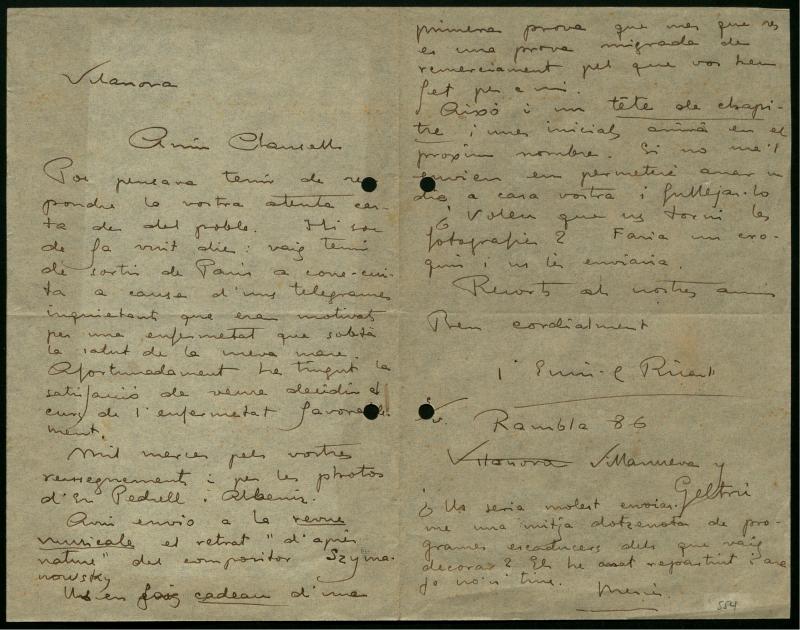 Vilanova
Amic Clausells
Poc pensava tenir de res
pondre la vostra atenta car-
ta de del poble. Hi soc
de fa vuit dies: vaig tenir
de sortir de Paris a corre-cui-
ta a causa d'uns telegrames
inquietants que eran motivats
per una enfermetat que sobtà
la salut de la meva mare.
Afortunadament he tingut la
satisfacció de veure decidir el
curs de l'enfermetat favorable-
ment.
Mil merces pels vostres
renseignements i per les photos
d'En Pedrell i Albeniz.
Avui envio a la revue
musicale el retrat "d'après
nature" del compositor Szyma-
nowsky
Us en faig cadeau d'una
primera prova que mes que res
es una prova migrada de
remerciament pel que vos heu
fet per a mi.
Això i un tête de chapi-
tre i unes inicials anirà en el
proxim nombre. Si no me'l
envien em permeteré anar un
dia a casa vostra i fullejar-lo
¿ Voleu que us torni les
fotografies? Faria un cro-
quis i us les enviaria.
Recorts als nostres amics
Ben cordialment
Enric C Ricart
Rambla 86
Vilanova Villanueva y
Geltrú
¿ Us seria molest enviar-
me una mitja dotzeneta de pro-
grames escaducers dels que vaig
decorar? Els he anat repartint i ara
jo no'n tinc. Merci.
554